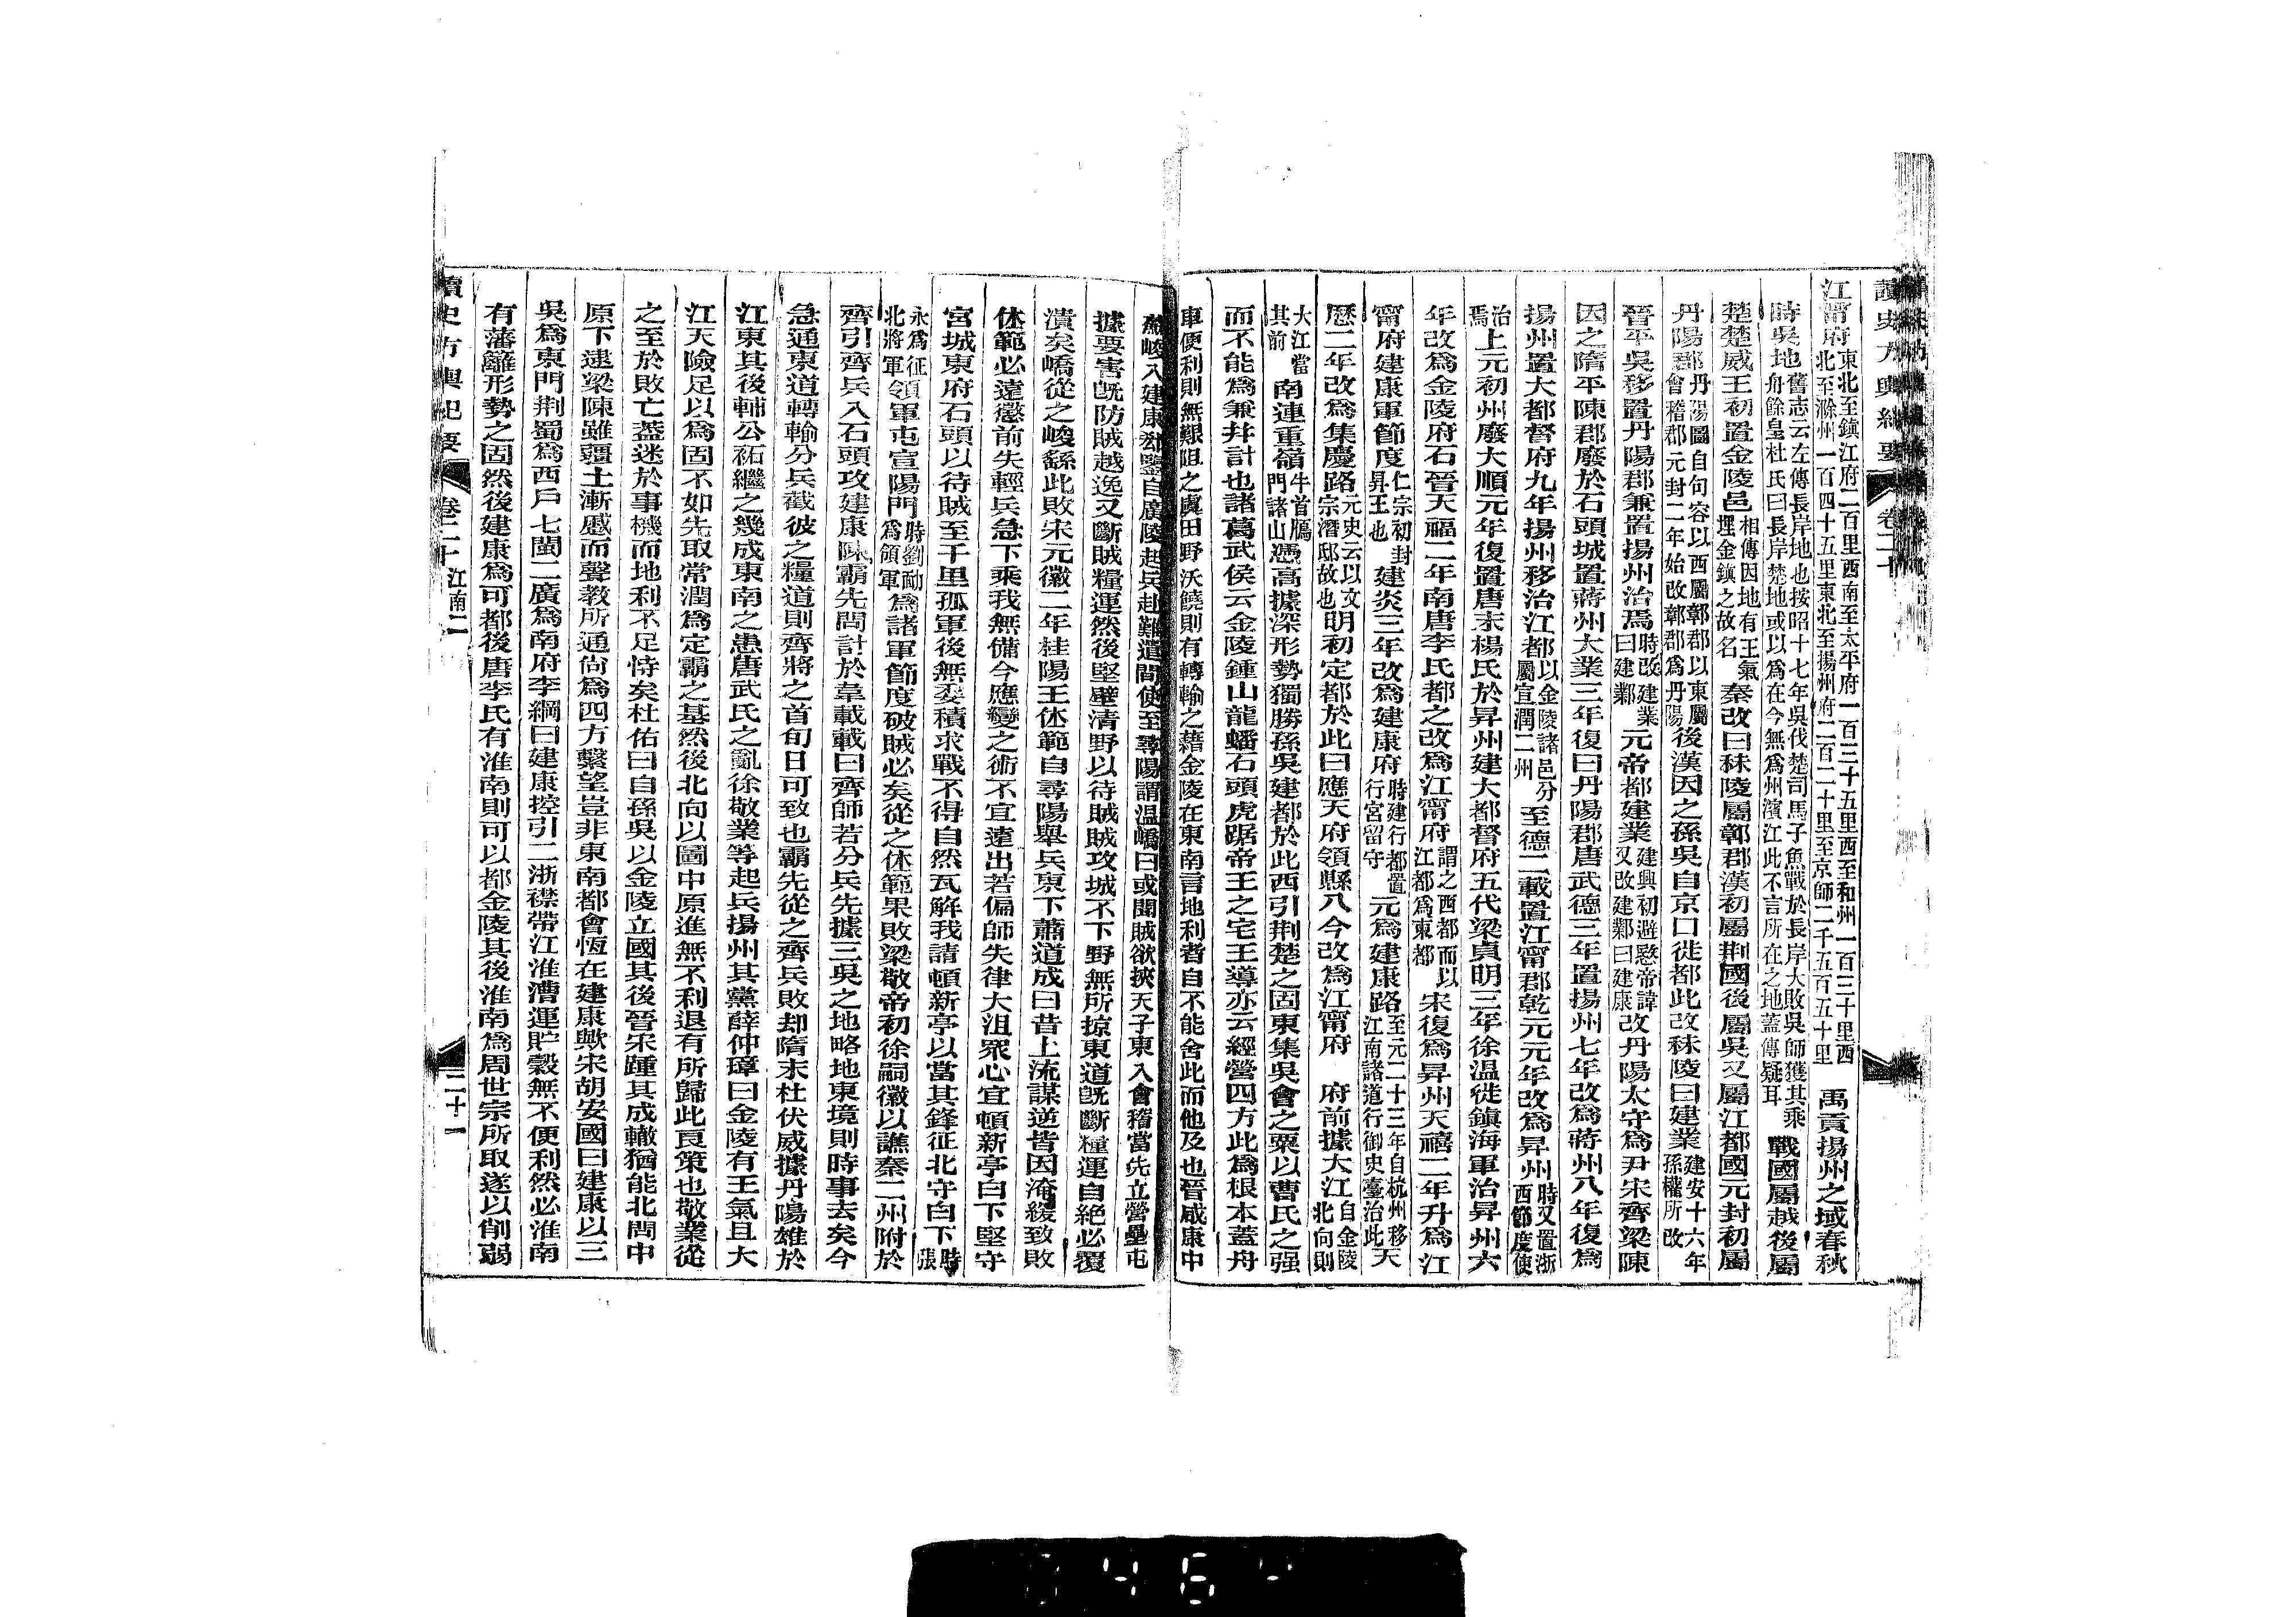 讀史方輿紀要 卷二十
江甯府東北至鎮江府二百里西南至太平府一百三十五里西至和州一百三十里西北至滁州一百四十五里東北至揚州府二百二十里至京師二千五百五十里 禹貢揚州之域春秋
時吳地舊志云左傳長岸地也按昭十七年吳伐楚司馬子魚戰於長岸大敗吳師獲其乘舟餘皇杜氏曰長岸楚地或以爲在今無爲州濱江此不言所在之地蓋傳疑耳 戰國屬越後屬
楚楚威王初置金陵邑相傳因地有王氣埋金鎮之故名 秦改曰秣陵屬鄣郡漢初屬荆國後屬吳又屬江都國元封初屬
丹陽郡丹陽圖自句容以西屬鄣郡以東屬會稽郡元封二年始改鄣郡爲丹陽 後漢因之孫吳自京口徙都此改秣陵曰建業建安十六年孫權所改
晉平吳移置丹陽郡兼置揚州治焉時改建業曰建鄴 元帝都建業建興初避愍帝諱又改建鄴曰建康 改丹陽太守爲尹宋齊梁陳
因之隋平陳郡廢於石頭城置蔣州大業三年復曰丹陽郡唐武德三年置揚州七年改爲蔣州八年復爲
揚州置大都督府九年揚州移治江都以金陵諸邑分屬宣潤二州 至德二載置江甯郡乾元元年改爲昇州時又置浙西節度使
治焉上元初州廢大順元年復置唐末楊氏於昇州建大都督府五代梁貞明三年徐温徙鎮海軍治昇州六
年改爲金陵府石晉天福二年南唐李氏都之改爲江甯府謂之西都而以江都爲東都 宋復爲昇州天禧二年升爲江
甯府建康軍節度仁宗初封昇王也 建炎三年改爲建康府時建行都置行宮留守 元爲建康路至元二十三年自杭州移江南諸道行御史臺治此 天
歷二年改爲集慶路元史云以文宗潛邸故也 明初定都於此曰應天府領縣八今改爲江甯府 府前據大江自金陵北向則
大江當其前 南連重嶺牛首鴈門諸山 憑高據深形勢獨勝孫吳建都於此西引荆楚之固東集吳會之粟以曹氏之强
而不能爲兼并計也諸葛武侯云金陵鍾山龍蟠石頭虎踞帝王之宅王導亦云經營四方此爲根本蓋舟
車便利則無艱阻之虞田野沃饒則有轉輸之藉金陵在東南言地利者自不能舍此而他及也晉咸康中
蘇峻入建康郄鑒自廣陵起兵赴難遣間使至尋陽謂温嶠曰或聞賊欲挾天子東入會稽當先立營壘屯
據要害旣防賊越逸又斷賊糧運然後堅壁清野以待賊賊攻城不下野無所掠東道旣斷糧運自絕必覆
潰矣嶠從之峻繇此敗宋元徽二年桂陽王休範自尋陽舉兵東下蕭道成曰昔上流謀逆皆因淹緩致敗
休範必遠懲前失輕兵急下乘我無備今應變之術不宜遠出若偏師失律大沮眾心宜頓新亭白下堅守
宮城東府石頭以待賊至千里孤軍後無委積求戰不得自然瓦解我請頓新亭以當其鋒征北守白下時張
永爲征北將軍 領軍屯宣陽門時劉勔爲領軍 爲諸軍節度破賊必矣從之休範果敗梁敬帝初徐嗣徽以譙秦二州附於
齊引齊兵入石頭攻建康陳霸先問計於韋載載曰齊師若分兵先據三吳之地略地東境則時事去矣今
急通東道轉輸分兵截彼之糧道則齊將之首旬日可致也霸先從之齊兵敗却隋末杜伏威據丹陽雄於
江東其後輔公祏繼之幾成東南之患唐武氏之亂徐敬業等起兵揚州其黨薛仲璋曰金陵有王氣且大
江天險足以爲固不如先取常潤爲定霸之基然後北向以圖中原進無不利退有所歸此良策也敬業從
之至於敗亡蓋迷於事機而地利不足恃矣杜佑曰自孫吳以金陵立國其後晉宋踵其成轍猶能北問中
原下逮梁陳雖疆土漸蹙而聲教所通尙爲四方繫望豈非東南都會恆在建康歟宋胡安國曰建康以三
吳爲東門荆蜀爲西戶七閩二廣爲南府李綱曰建康控引二浙襟帶江淮漕運貯穀無不便利然必淮南
有藩籬形勢之固然後建康爲可都後唐李氏有淮南則可以都金陵其後淮南爲周世宗所取遂以削弱
讀史方輿紀要 卷二十 江南二 二十一